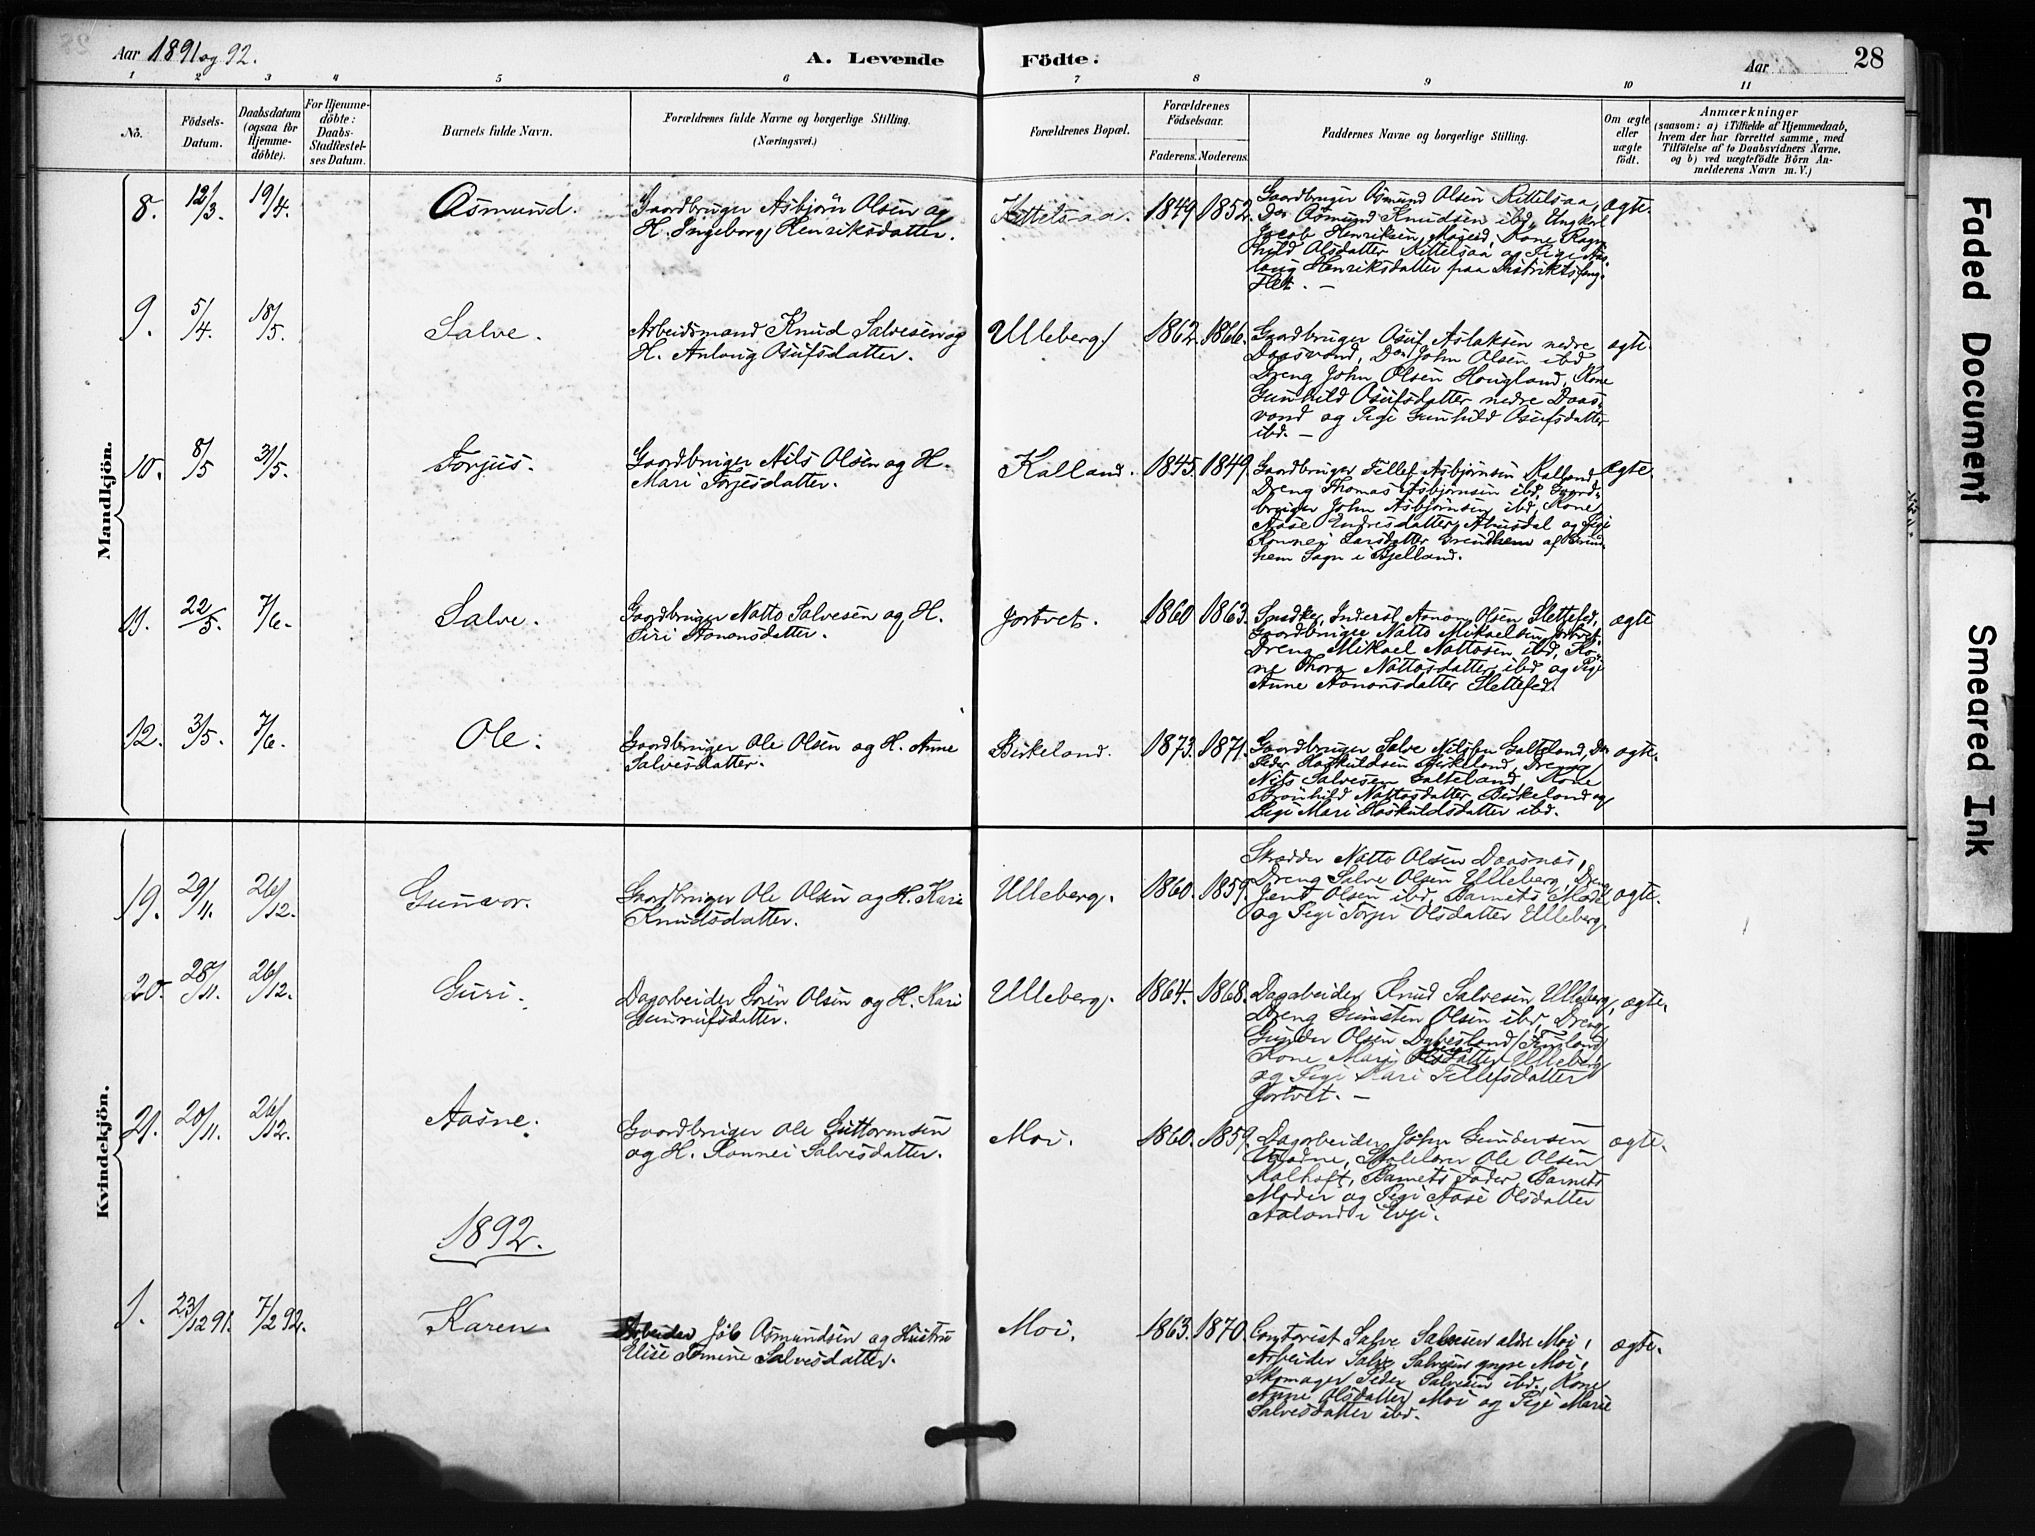 Aar 1891 og 92.
A. Levende Födte.
Aar
28
1 2 3 4 5 6 7 8 9 10 11
No.
Födsels-Datum.
Daabsdatum (ogsaa for Hjemme-döbte).
For Hjemme-döbte: Daabs-Stadfæstel-ses Datum.
Barnets fulde Navn.
Forældrenes fulde Navne og borgerlige Stilling. (Næringsvei.)
Forældrenes Bopæl.
Forældrenes Födselsaar.
Faderens. Moderens.
Faddernes Navne og borgerlige Stilling.
Om ægte eller uægte födt.
Anmærkninger
(saasom: a) i Tilfælde af Hjemmedaab,
hvem der har forrettet samme, med
Tilföielse af to Daabsvidners Navne.
og b) ved uægtefödte Börn An-
melderens Navn m. V.)
Mandkjön.
8. 12/3. 19/4. Osmund. Gaardbruger Asbjørn Olsen og
H. Ingeborg Henriksdatter.
Kittelsaa. 1849 1852.
Gaardbruger Osmund Olsen Kittelsaa,
Do Osmund Knudsen ibd, Ungkarl
Jacob Henriksen, Moseid, Kone Ragn-
hild Olsdatter Kittelsaa og Pige
Henriksdatter paa Distriktsfæng-
slet. —
ægte.
9. 5/4. 18/5. Salve. Arbeidsmand Knud Salvesen og
H. Anlaug Osufsdatter.
Ulleberg 1862. 1866.
Gaardbruger Osuf Aslaksen nedre
Daasvand, Do John Olsen ibd
Dreng John Olsen Hougland, Kone
Gunhild Osufsdatter nedre Daas-
vand og Pige Gunhild Osufsdatter
ibd. —
ægte.
10. 8/5 31/5. Torjus. Gaardbruger Nils Olsen og H.
Mari Torjesdatter.
Kalland. 1845. 1849.
Gaardbruger Tellef Asbjørnsen Kalland
Dreng Thomas Asbjørnsen ibd, Gaard-
bruger John Asbjørnsen ibd, Kone
Aase Endresdatter Abusdal og Pige
Ronnei Larsdatter Grundhem af Grind-
hem Sogn i Bjelland.
ægte.
11. 22/5. 7/6. Salve. Gaardbruger Natto Salvesen og H.
Siri Aanonsdatter.
Jortvet. 1860 1863.
Snedker, Inderst, Aanon Olsen Slettefed,
Gaardbruger Natto Mikaelsen Jortvet,
Dreng Mikael Nattosen ibd, Ko-
ne Thora Nattosdatter ibd og Pige
Anne Aanonsdatter Slettefed.
ægte
12. 31/5. 7/6. Ole. Gaardbruger Ole Olsen og H. Anne
Salvesdatter.
Birkeland. 1873. 1871.
Gaardbruger Salve Nilsen Galteland, Do
Peder Hoskuldsen Birkeland, Dreng
Nils Salvesen Galteland, Kone
Gronhild Nattosdatter Birkeland og
Pige Mari Hoskuldsdatter ibd.
ægte.
Kvindekjön.
19. 29/11. 26/12. Gunvor. Gaardbruger Ole Olsen og H. Kari
Knudsdatter.
Ulleberg. 1860. 1859.
Skrædder Natto Olsen Daasnes,
Dreng Salve Olsen Ulleberg, Dreng
Jens Olsen ibd, Barnets Moder
og Pige Torjer Olsdatter Ulleberg.
ægte.
20. 28/11. 26/12. Guri. Dagarbeider Søren Olsen og H. Kari
Gunnufsdatter.
Ulleberg. 1864. 1868.
Dagarbeider Knud Salvesen Ulleberg,
Dreng Gunsten Olsen ibd, Dreng
Gunder Olsen Dybesland Finsland
Kone Mari Olsdatter Ulleberg
og Pige Kari Tellefsdatter
Jortvet. —
ægte.
21. 20/11. 26/12. Aasne. Gaardbruger Ole Guttormsen
og H. Ronnei Salvesdatter.
Moi. 1860. 1859.
Dagarbeider John Gundersen
Skolelærer Ole Olsen
Kalhoft, Barnets Fader, Barnets
Moder og Pige Aase Olsdatter
Aaland i Evje.
ægte.
1892.
1. 23/12 91. 7/2 92. Karen. Arbeider Job Osmundsen og Hustru
Elise Tomine Salvesdatter.
Moi. 1863. 1870.
Contorist Salve Salvesen ældre Moi,
Arbeider Salve Salvesen yngre Moi,
Skomager Peder Salvesen ibd. Kone
Anne Olsdatter Moi og Pige Marie
Salvesdatter ibd.
ægte.
Faded Document
Smeared Ink